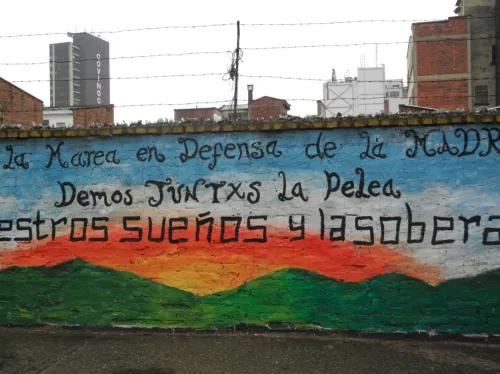 la Marea en Defensa de la MADR
Demos JUNTXS la Pelea
estros sueños y la sobera